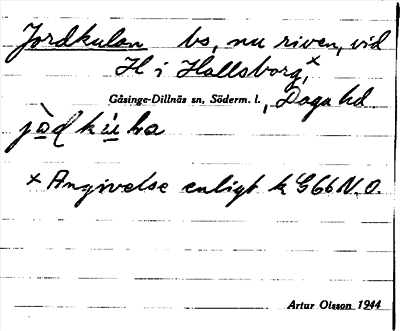 Jordkulan bs, nu riven, vid
H i Hallsborg,x
Gåsinge-Dillnäs sn, Söderm. l., Daga hd
x Angivelse enligt k G66 N.O.
Artur Olsson 1944